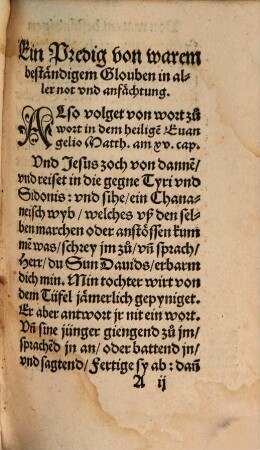 Ein Predig von warem
beständigem Glouben in al-
ler not vnd anfächtung.
Also volget von wort zů
wort in dem heiligē Euan
gelio Matth. am xv. cap.
Vnd Jesus zoch von dannē/
vnd reiset in die gegne Tyri vnd
Sidonis: vnd sihe/ ein Chana-
neisch wyb/ welches vß den sel-
ben marchen oder anstössen kum
mē was/ schrey jm zů/ vn̄ sprach/
Herr/ du Sun Dauids/ erbarm
dich min. Min tochter wirt von
dem Tüfel jämerlich gepyniget.
Er aber antwort jr nit ein wort.
Vn̄ sine jünger giengend zů jm/
sprachēd jn an/ oder battend jn/
vnd sagtend/ Fertige sy ab: dañ
A ij